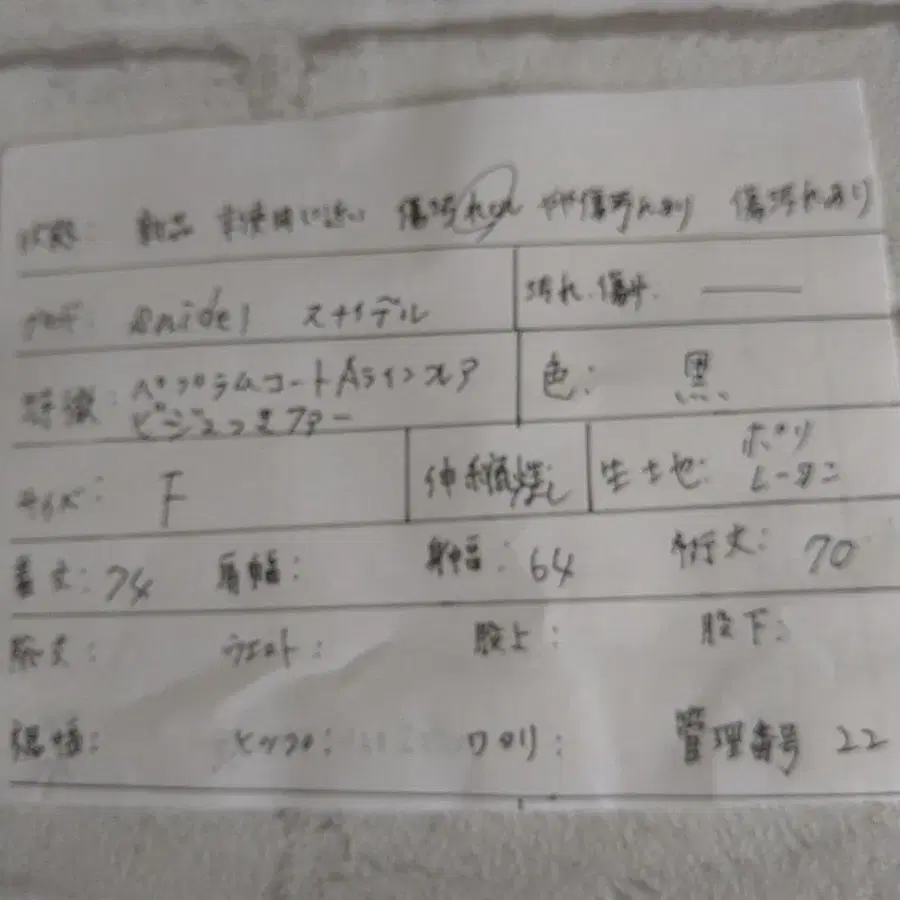 状態: 新品 未使用に近い 傷汚れなし やや傷汚れあり 傷汚れあり
snidel スナイデル 汚れ、傷み.
特徴: ペプラムコートAラインフレア
ビジューファー
色: 黒
サイズ: F 伸縮性:なし 生地: ポリ
レーヨン
着丈: 74 肩幅: 身幅: 64 裄丈: 70
ウエスト: 股上: 股下:
裾幅: ヒップ: ワタリ: 管理番号 22